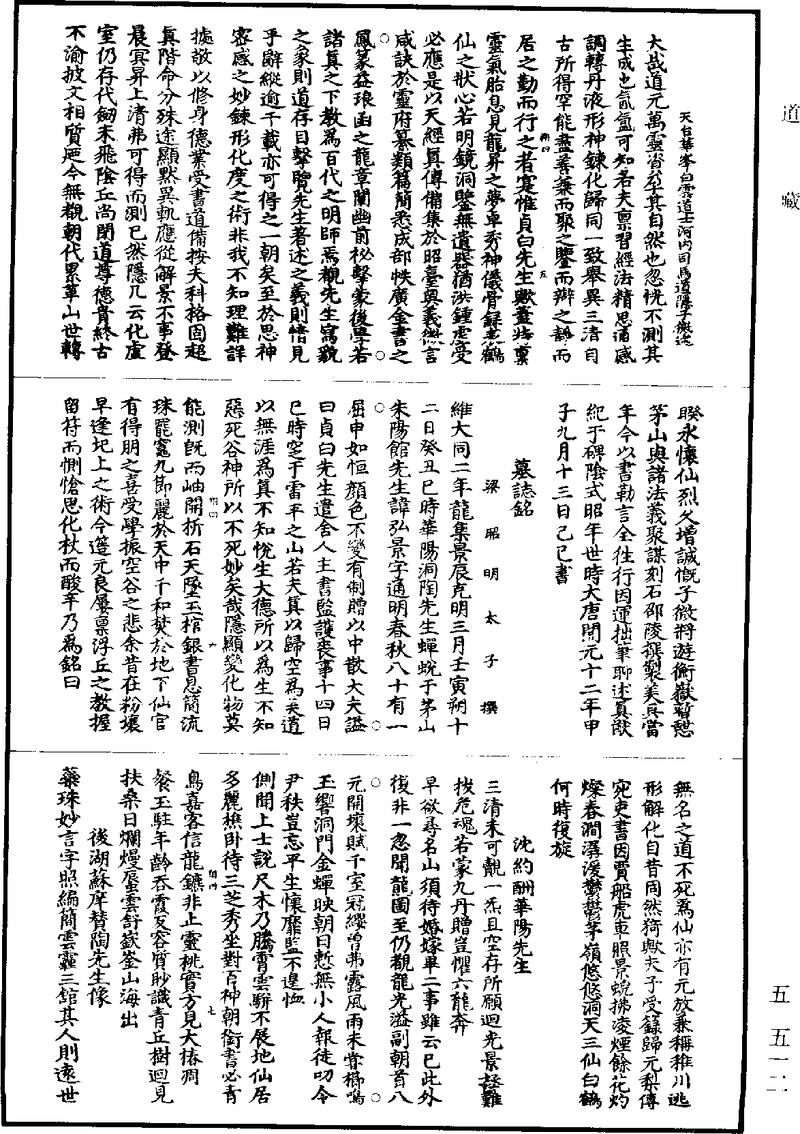 道藏
天台華峯白雲道士河內司馬道隱子微述
大哉道元萬靈資孕其自然也忽恍不測其
生成也氤氳可知若夫稟習經法精思通感
調轉丹液形神鍊化歸同一致舉異三清自
古所得罕能盡善兼而聚之鑒而辯之靜而
居之勤而行之者寔惟貞白先生歟蓋特稟
靈氣胎息見龍昇之夢卓秀神儀骨錄表鶴
仙之狀心若明鏡洞鑒無遺器猶洪鍾虛受
必應是以天經真傳備集於昭臺奧義微言
咸訣於靈府纂類篇簡悉成部帙廣金書之
鳳篆益琅函之龍章闡幽前秘擊蒙後學若
諸真之下教為百代之明師焉觀先生寫貌
之象則道存目擊覽先生著述之義則情見
乎辭縱逾千載亦可得之一朝矣至於思神
密感之妙鍊形化度之術非我不知理難詳
據敬以修身德業受書道備按夫科格固超
真階命分殊途顯默異軌應從解景不事登
晨冥昇上清弗可得而測已然隱几云化虛
室仍存代劒未飛陰丘尚閉道尊德貴終古
不渝披文相質歷今無覩朝代累革山世轉
睽永懷仙烈久增誠慨子微將遊衡嶽暫憩
茅山與諸法義聚謀刻石邵陵撰製美具當
年今以書勒言全往行因運拙筆聊述真猷
紀于碑陰式昭年世時大唐開元十二年甲
子九月十三日己巳書
墓誌銘
梁昭明太子撰
維大同二年龍集景辰克明三月壬寅朔十
二日癸丑巳時華陽洞陶先生蟬蛻于茅山
朱陽館先生諱弘景字通明春秋八十有一
屈申如恒顏色不變有制贈以中散大夫謚
曰貞白先生遣舍人主書監護喪事十四日
巳時窆于雷平之山若夫真以歸空為美道
以無涯為真不知悅生大德所以為生不知
惡死谷神所以不死妙矣哉隱顯變化物莫
能測既而岫開析石天墜玉棺銀書息簡流
珠罷竈九節麗於天中千和焚於地下仙官
有得朋之喜受學振空谷之悲余昔在粉壤
早逢圯上之術今簉元良屢稟浮丘之教握
留符而惻愴思化杖而酸辛乃為銘曰
無名之道不死為仙亦有元放兼稱稚川逃
形解化自昔同然猗歟夫子受籙歸元梨傳
宛吏書因賈船虎車照景蜺拂凌煙餘花灼
爍春澗潺湲鬱鬱茅嶺悠悠洞天三仙白鶴
何時復旋
沈約酬華陽先生
三清未可覿一炁且空存所願迴光景拯難
拔危魂若蒙九丹贈豈懼六龍奔
早欲尋名山須待婚嫁畢二事雖云已此外
復非一忽聞龍圖至仍覩龍光溢副朝首八
元開壤賦千室冠纓曾弗露風雨未嘗櫛鳴
玉響洞門金蟬映朝日慙無小人報徒叨令
尹秩豈忘平生懷靡盬不遑恤
側聞上士說尺木乃騰霄雲駢不展地仙居
多麗樵卧待三芝秀坐對百神朝銜書必青
鳥嘉客信龍鑣非止靈桃實方見大椿凋
餐玉駐年齡吞霞反容質眇識青丘樹迴見
扶桑日爛熳蜃雲舒嶔崟山海出
後湖蘇庠贊陶先生像
蘂珠妙言字照編簡雲龕三館其人則遠世
五 五一二